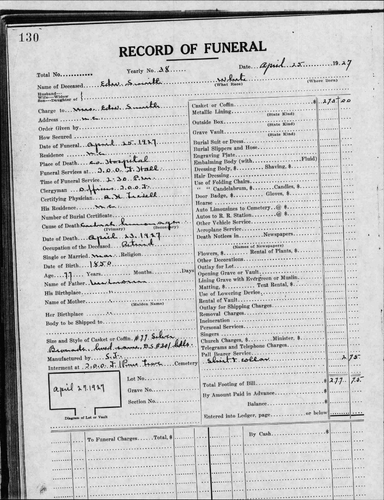 130
RECORD OF FUNERAL
Total No. Yearly No. 38 Date April 25 1927
Name of Deceased Edw Smith White
Husband— (What Race) (Where Born)
Wife—Widow
Son—Daughter of
Charge to Mrs. Edw Smith
Address
Order Given by
How Secured
Date of Funeral April 25. 1927
Residence
Place of Death Co. Hospital
Funeral Services at I.O.O.F. Hall
Time of Funeral Service 2:30 P.M.
Clergyman Officers I.O.O.F.
Certifying Physician
His Residence
Number of Burial Certificate
Cause of Death
(Primary) (Secondary)
Date of Death April 23. 1927
Occupation of the Deceased Retired
Single or Married Mar Religion
Date of Birth 1850
Age 77 Years Months Days
Name of Father Unknown
His Birthplace
Name of Mother
(Maiden Name)
Her Birthplace
Body to be Shipped
Size and Style of Casket or Coffin #77 Silver
Manufactured by
Interment at I.O.O.F. Cemetery
April 25. 1927
Lot No.
Grave No.
Section No.
Diagram of Lot or Vault
Casket or Coffin $ 275 00
Metallic Lining
(State Kind)
Outside Box
(State Kind)
Grave Vault
(State Kind)
Burial Suit or Dress
Burial Slippers and Hose
Engraving Plate
Embalming Body (with Fluid)
Dressing Body, $ Shaving, $
Hair Dressing
Use of Folding Chairs
" " Candelabrum, $ Candles, $
Door Badge, $ Gloves, $
Hearse
Auto Limousines to Cemetery @ $
Autos to R. R. Station @ $
Other Vehicle Service
Aeroplane Service
Death Notices in Newspapers
(Names of Newspapers)
Flowers, $ Rental of Plants, $
Other Decorations
Outlay for Lot
Opening Grave or Vault
Lining Grave with Evergreen or Muslin
Matting, $ Tent Rental, $
Use of Lowering Device
Rental of Vault
Outlay for Shipping Charges
Removal Charges
Incineration
Personal Services
Singers
Church Charges, $ Minister, $
Telegrams and Telephone Charges
Pall Bearer Service
Shirt & Collar 2 75
Total Footing of Bill $ 277 75
By Amount Paid in Advance
Balance
Entered into Ledger, page or below
To Funeral Charges Total, $ By Cash $